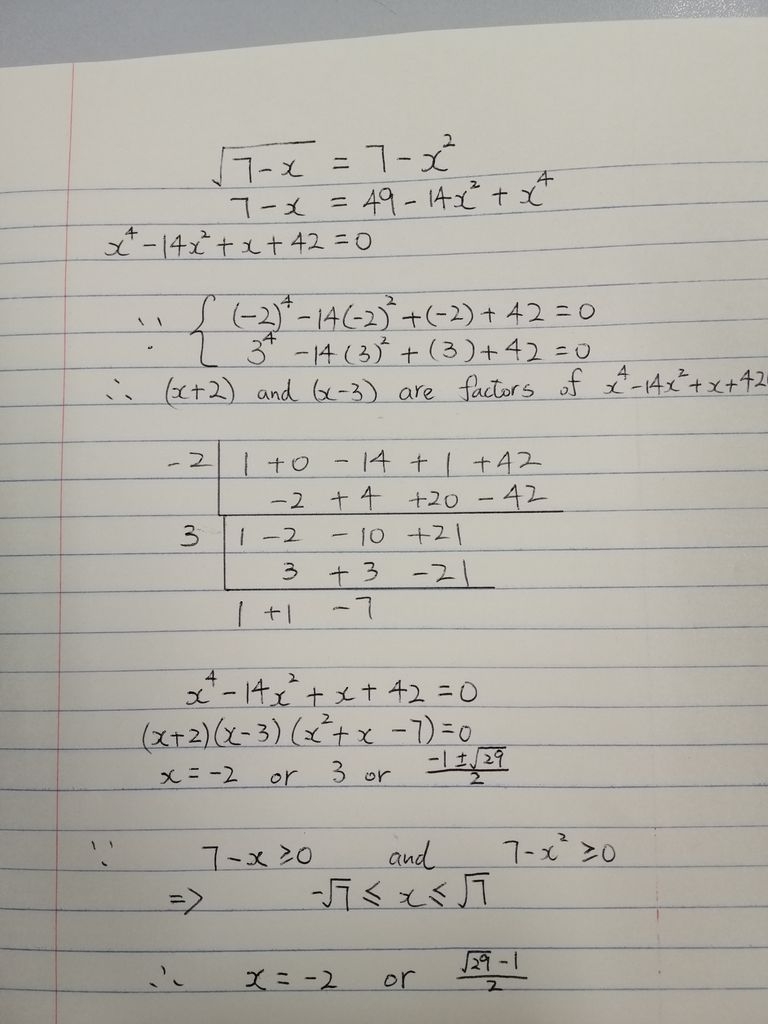 √(7-x) = 7-x²
7-x = 49-14x²+x⁴
x⁴-14x²+x+42=0
∵ { (-2)⁴-14(-2)²+(-2)+42=0
3⁴-14(3)²+(3)+42=0
∴ (x+2) and (x-3) are factors of x⁴-14x²+x+42
-2 | 1 +0 -14 +1 +42
-2 +4 +20 -42
3 | 1 -2 -10 +21
3 +3 -21
1 +1 -7
x⁴-14x²+x+42=0
(x+2)(x-3)(x²+x-7)=0
x=-2 or 3 or (-1±√29)/2
∵ 7-x≥0 and 7-x²≥0
=> -√7 ≤ x ≤ √7
∴ x=-2 or (√29-1)/2